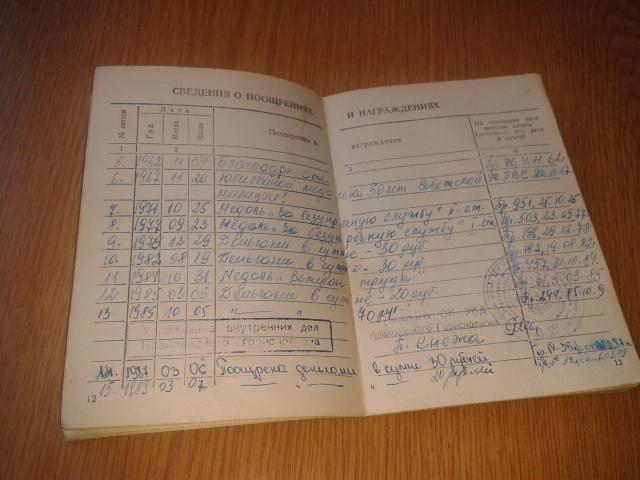 СВЕДЕНИЯ О ПООЩРЕНИЯХ И НАГРАЖДЕНИЯХ
№ записи Дата Поощрения и награждения На основании чего внесена запись (документ, его дата и номер)
Год Месяц Число
1 2 3 4
5. 1962 11 04 Благодарность Пр.
6. 1967 11 20 Юбилейной медалью 50 лет Советской
милиции"
7. 1971 10 25 Медаль „За безупречную службу" II-ст. Пр. 951, 25.10.75
8. 1977 09 23 Медаль „За безупречную службу" I-ст. Пр. 503, 23.09.77
9. 1978 12 29 Деньгами в сумме - 30 руб. Пр. 196, 29.12.78
10. 1982 08 19 Деньгами в сумме - 30 руб. Пр. 182, 19.08.82
11 1984 10 31 Медаль „Ветеран труда" Пр. 457, 31.10.84
12 1985 03 05 Деньгами в сумме - 20 руб. 5.03.85
13. 1985 10 05 — " — 70 лет Пр. 244. 85.10.9
Управления внутренних дел ОК УВД
горисполкома Горисполкома
14. 1987 03 06 Поощрен деньгами в сумме 30 рублей
15. 1989 03 07 20 рублей
12 13